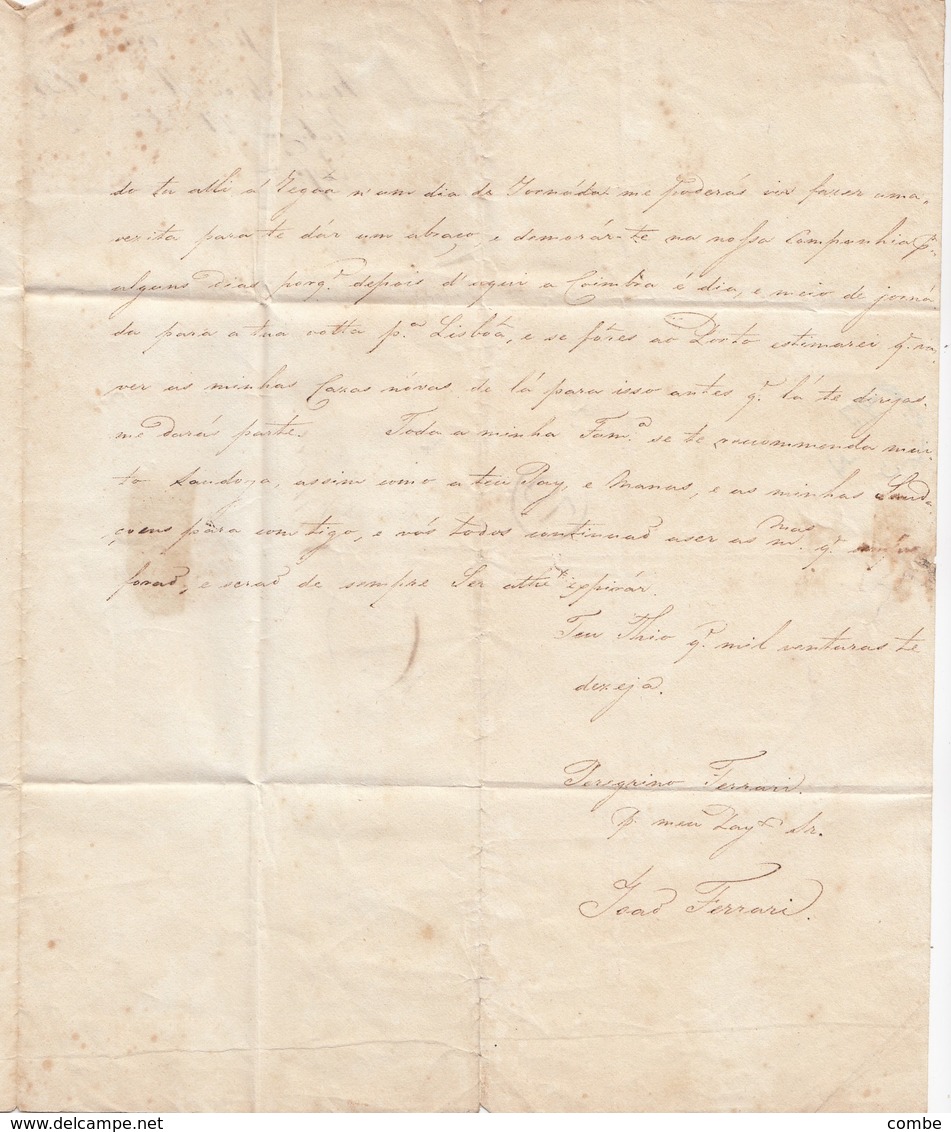 do tu alli a Vegôa n'um dia de Jornáda, me poderás vir fazer uma,
vezita para te dár um abraço, e demorár-te na nossa Companhia p.r
alguns dias, porq.e depois d'aqui a Coimbra é dia, e meio de jorná
da para a tua volta p.a Lisbôa, e se fôres ao Porto estimarei q. vas,
ver as minhas Cazas nóvas de lá para isso antes q.e lá te dirijas,
me darás parte. Toda a minha Fam.a se te recommenda mui
to Saudoza, assim como a teu Pay, e Manas, e as minhas Sauda
çoens para comtigo, e vós todos continuaõ a ser as m.mas q.
foraõ, e seraõ de sempre Ser athé expirár.
Teu Thio q.e mil venturas te
dezeja.
Peregrino Ferrari.
P. meu Pay e Sr.
Joaõ Ferrari.
www.delcampe.net
combe